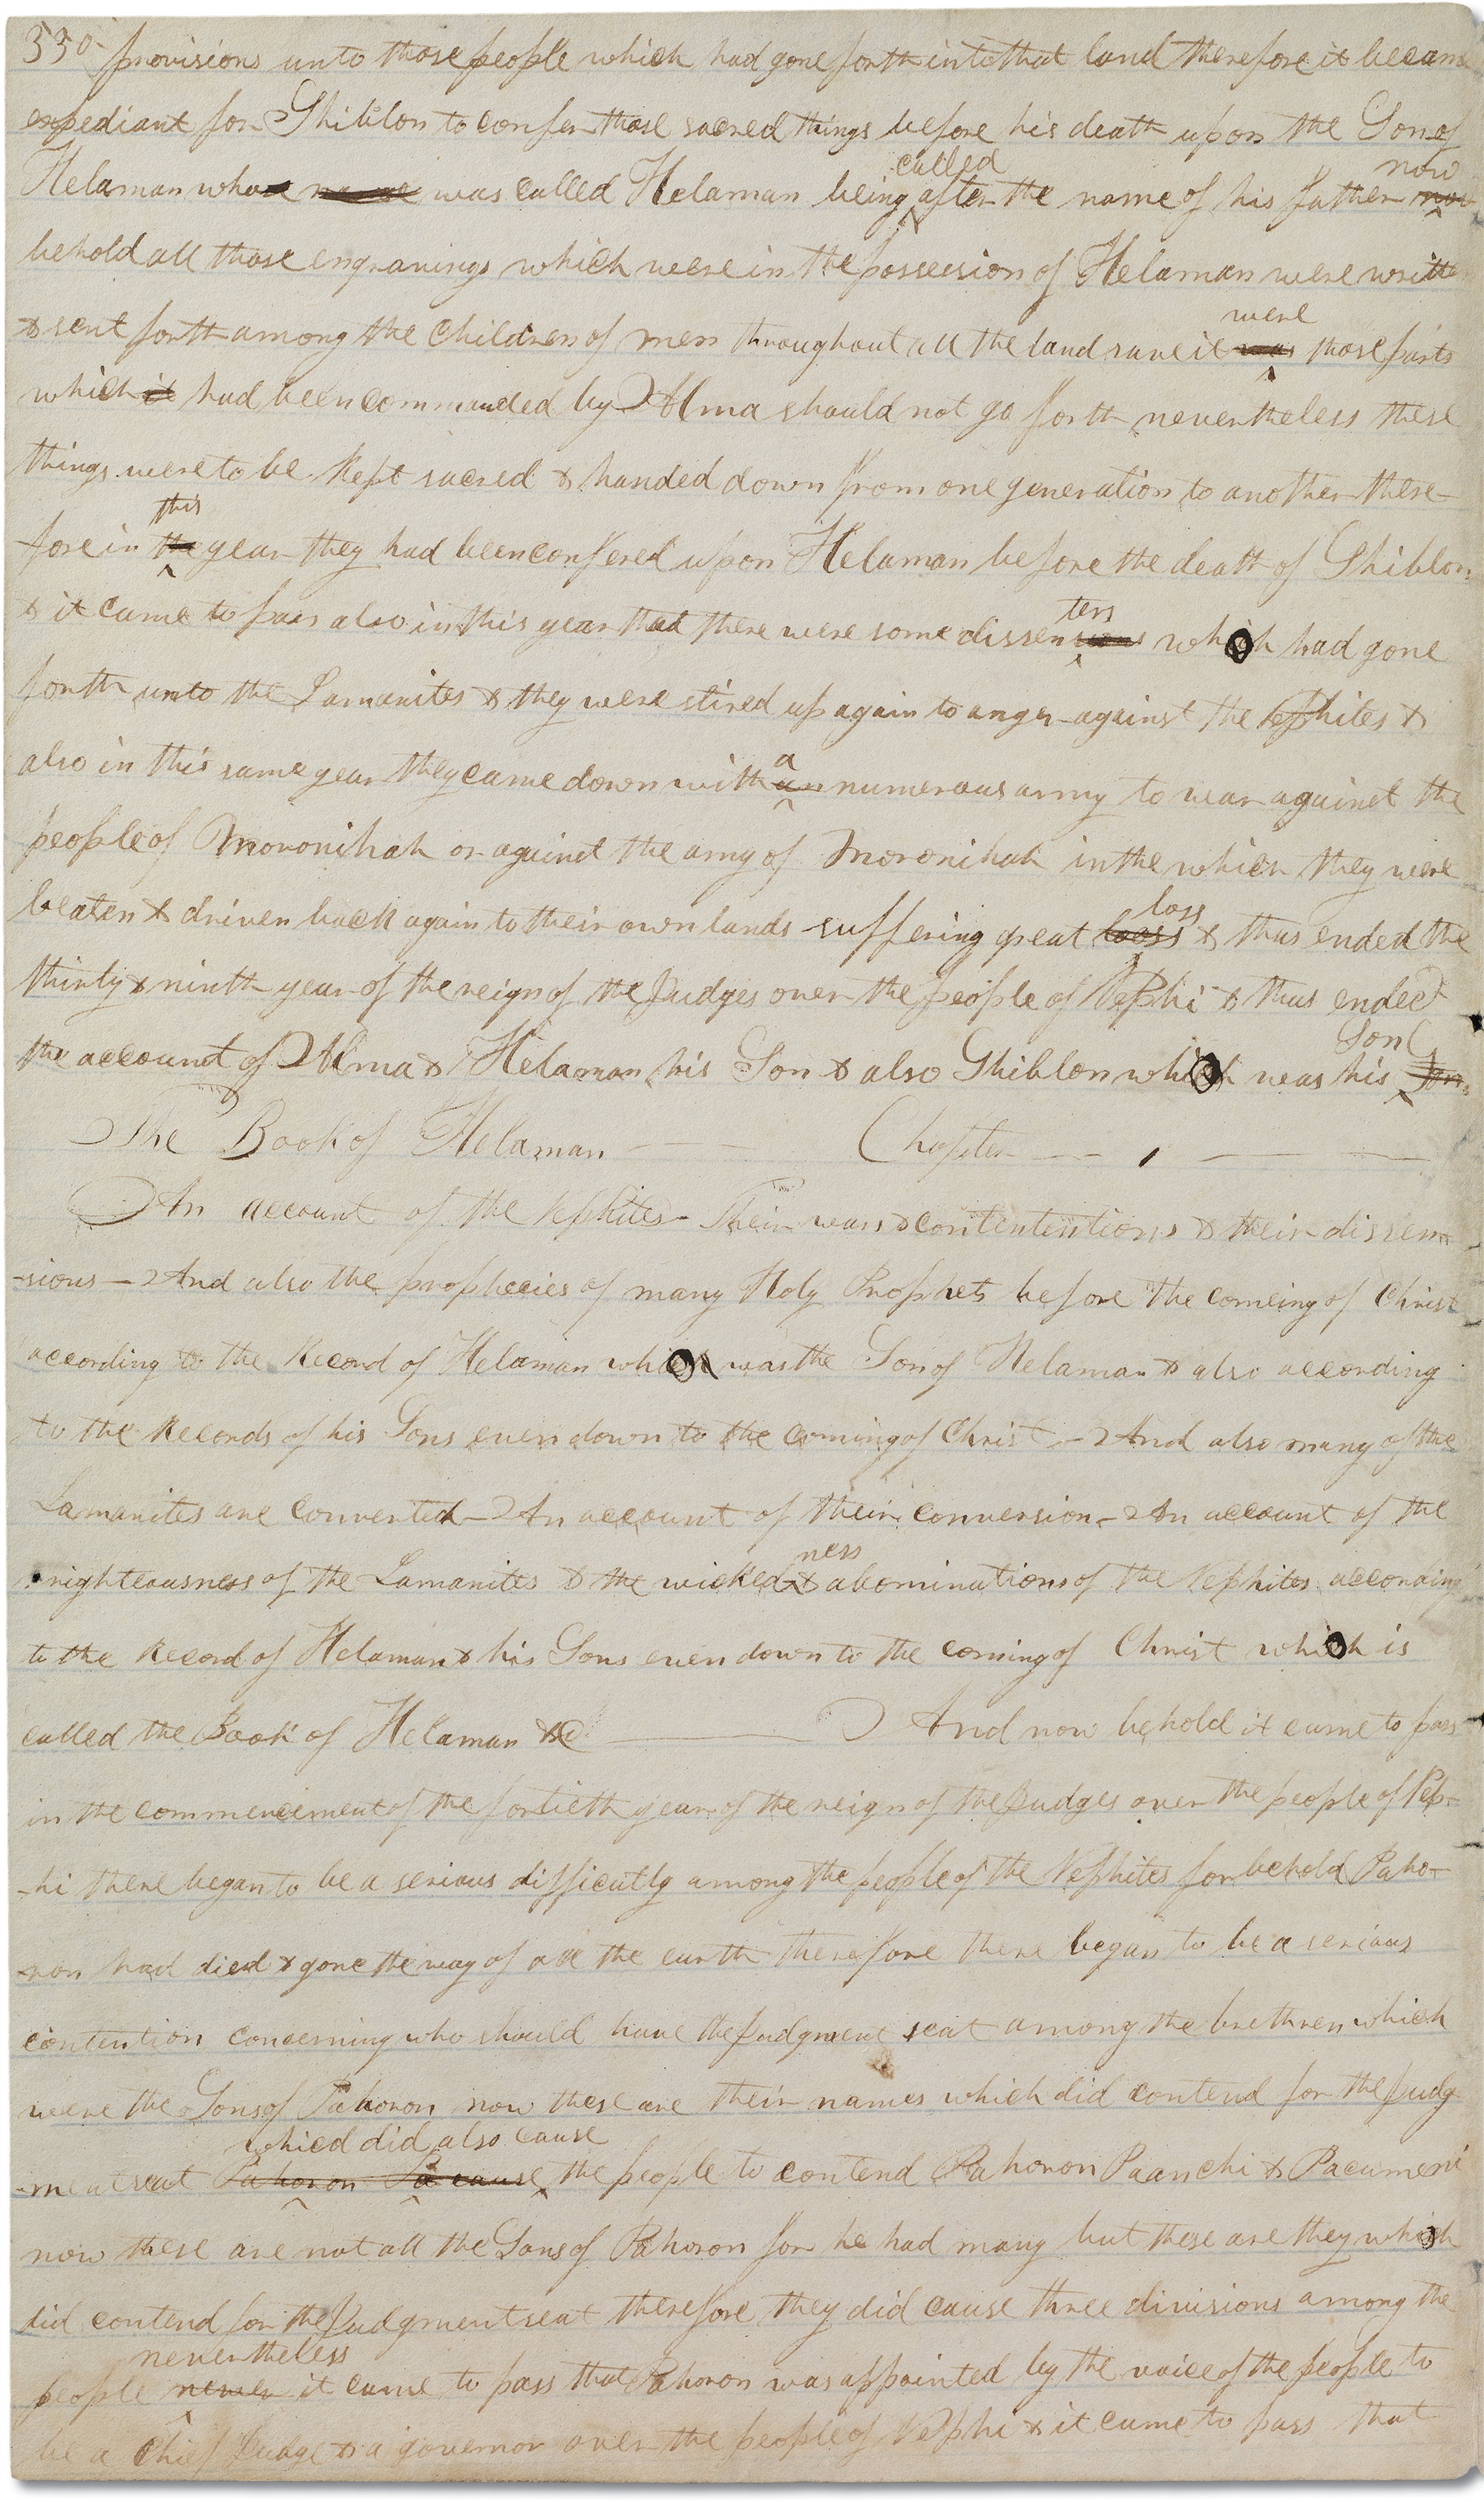 330 provisions unto those people which had gone forth into that land therefore it became
expediant for Shiblon to confer those sacred things before his death upon the Son of
called now
Helaman who was called Helaman being after the name of his father
behold all those engravings which were in the possession of Helaman were written
were
& sent forth among the Children of men throughout all the land save it was those parts
which it had been commanded by Alma should not go forth nevertheless these
things were to be kept sacred & handed down from one generation to another there-
this
fore in the year they had been confered upon Helaman before the death of Shiblon
ters
& it came to pass also in this year that there were some dissensions which had gone
forth unto the Lamanites & they were stired up again to anger against the Nephites &
a
also in this same year they came down with an numerous army to war against the
people of Moronihah or against the army of Moronihah in the which they were
loss
beaten & driven back again to their own lands suffering great looss & thus ended the
thirty & ninth year of the reign of the Judges over the people of Nephi & thus ended
Son
the account of Alma & Helaman his Son & also Shiblon which was his Son
The Book of Helaman Chapter 1
An account of the Nephites Their wars & contententions & their dissen
-sions - And also the prophecies of many Holy Prophets before the comeing of Christ
according to the Record of Helaman which was the Son of Helaman & also according
to the Records of his Sons even down to the coming of Christ - And also many of the
Lamanites are converted - An account of their conversion - An account of the
ness
righteousness of the Lamanites & the wicked & abominations of the Nephites according
to the Record of Helaman & his Sons even down to the coming of Christ which is
called the Book of Helaman &c And now behold it came to pass
in the commencement of the fortieth year of the reign of the Judges over the people of Nep-
-hi there began to be a serious difficutly among the people of the Nephites for behold Paho-
ron had died & gone the way of all the earth therefore there began to be a serious
contention concerning who should have the Judgment seat among the brethren which
were the Sons of Pahoron now these are their names which did contend for the Judg
whied did also cause
-ment seat Pahoron Pa cause the people to contend Pahoron Paanchi & Pacumeni
now these are not all the Sons of Pahoron for he had many but these are they which
did contend for the Judgment seat therefore they did cause three divisions among the
nevertheless
people never it came to pass that Pahoron was appointed by the voice of the people to
be a Chief Judge & a governor over the people of Nephi & it came to pass that